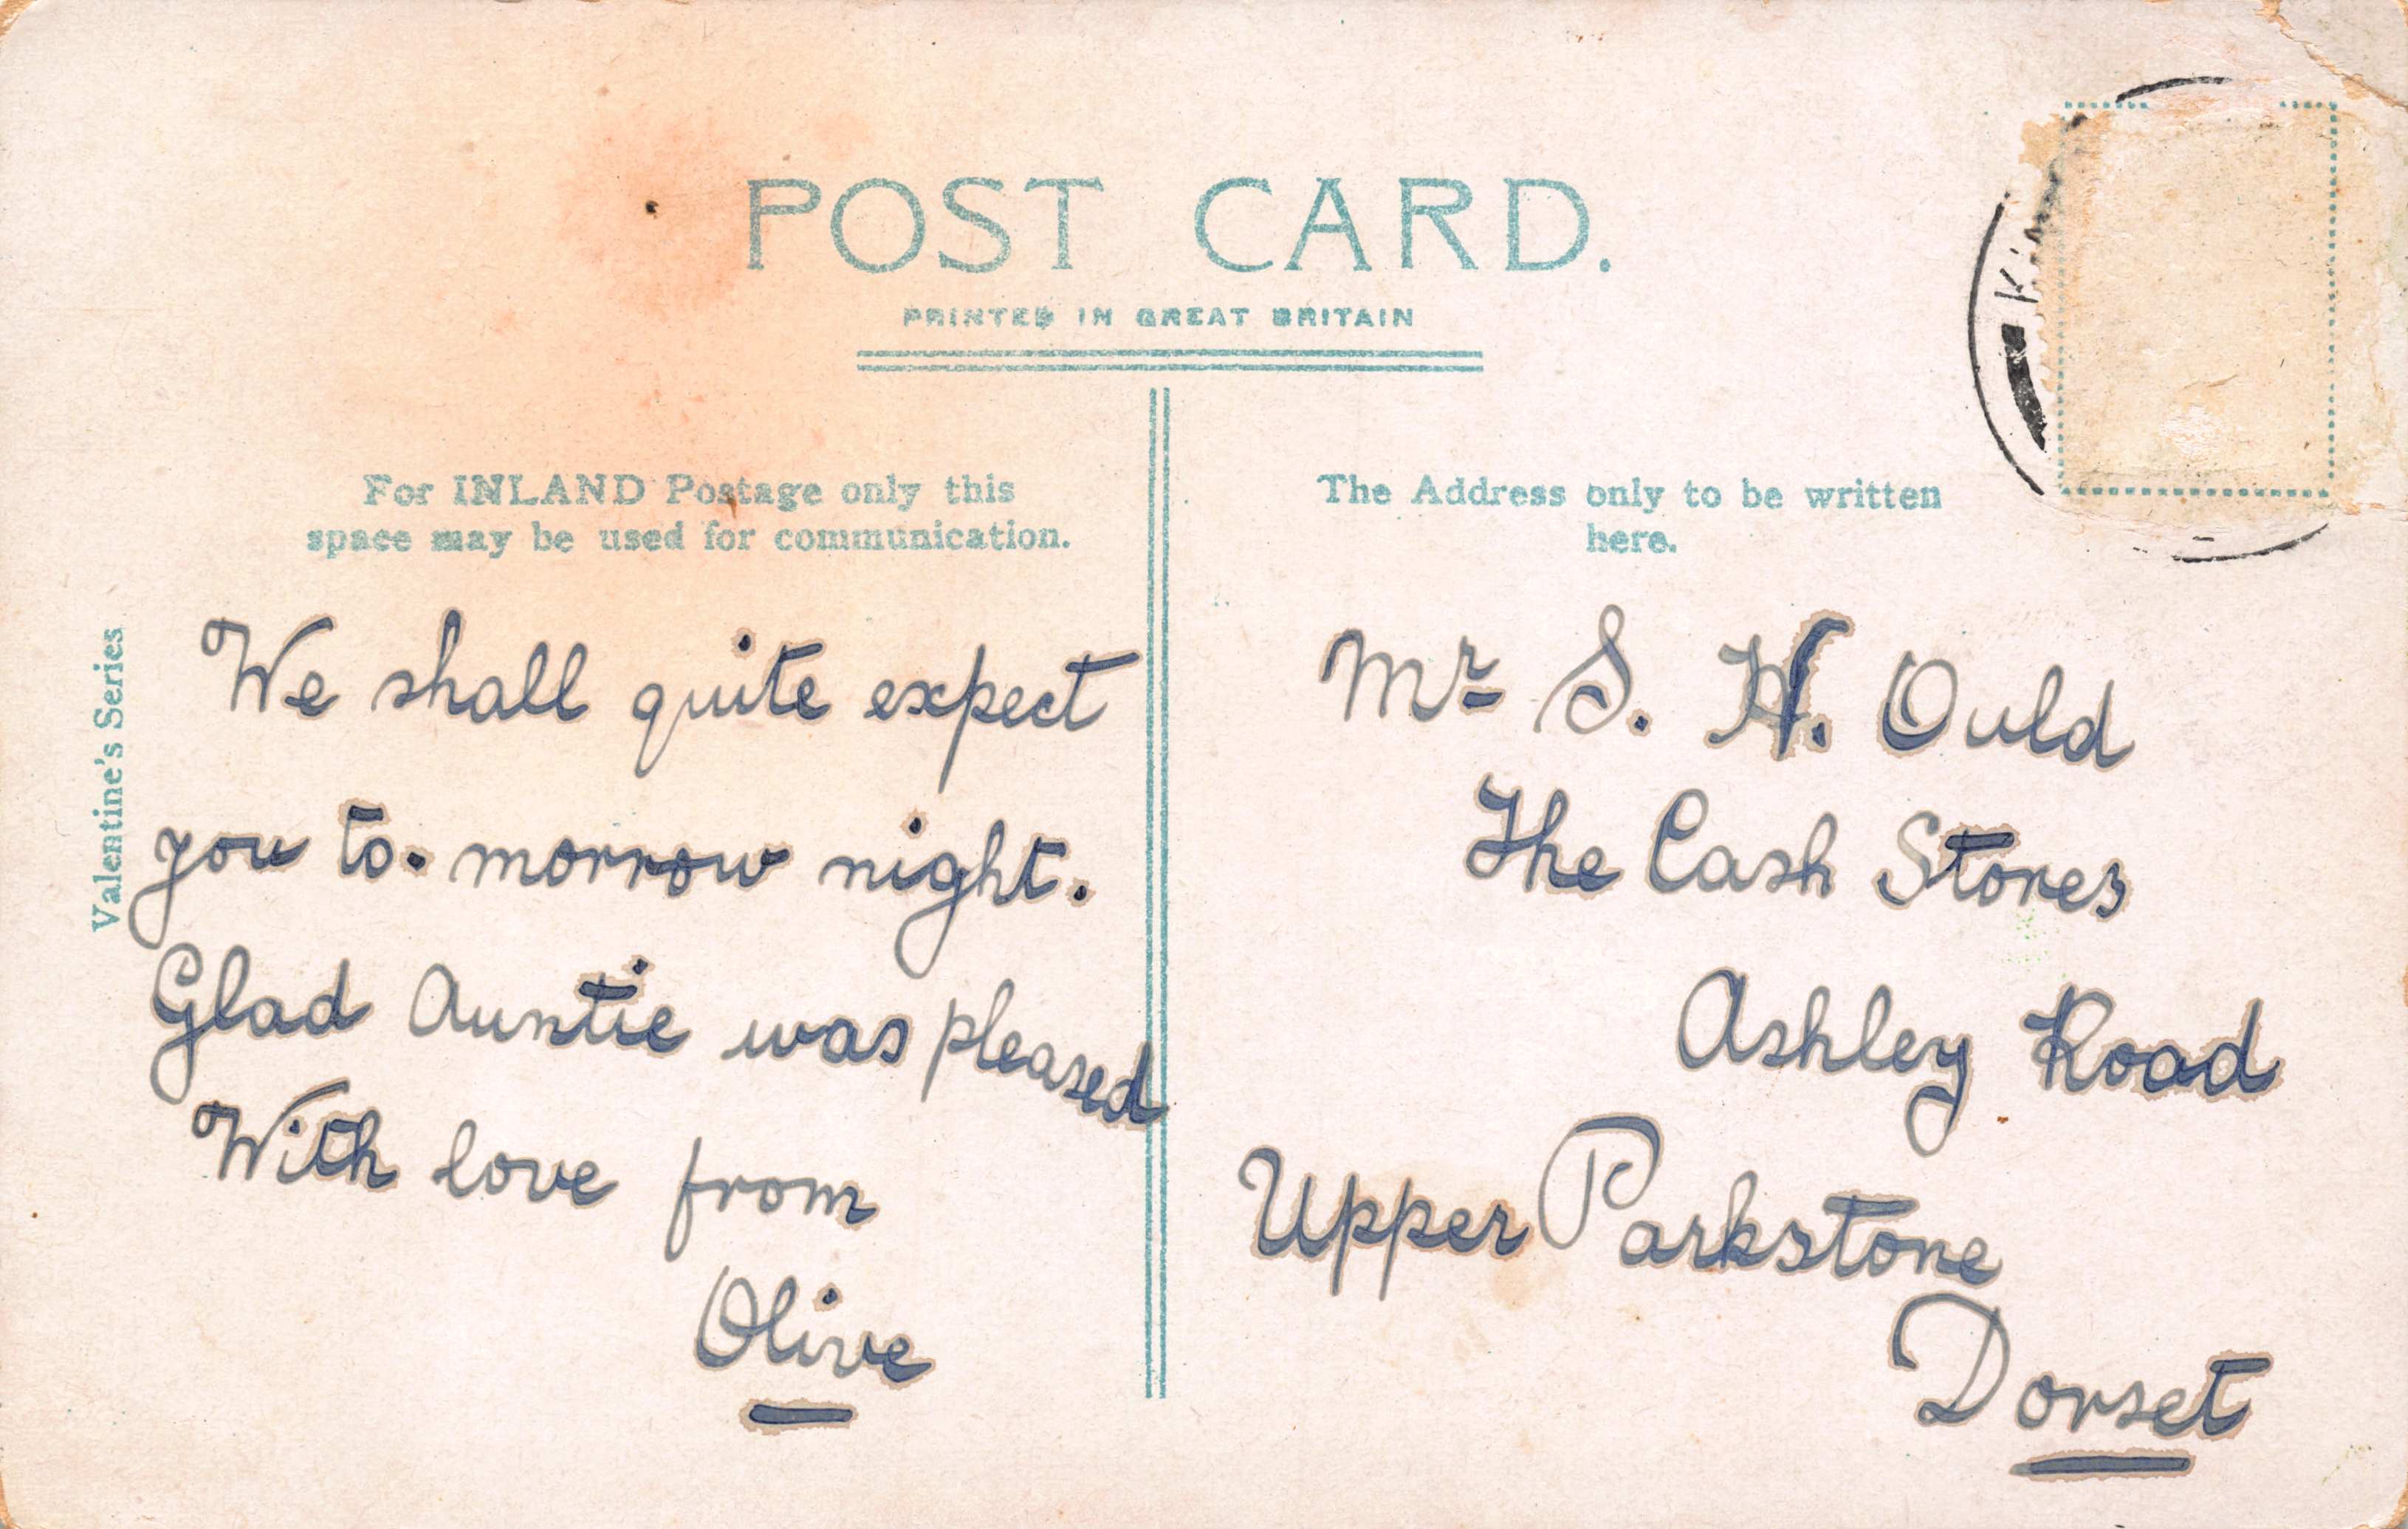 POST CARD.
PRINTED IN GREAT BRITAIN
For INLAND Postage only this
space may be used for communication.
The Address only to be written
here.
Valentine's Series
We shall quite expect
you to-morrow night.
Glad Auntie was pleased
With love from
Olive
Mr S. H. Ould
The Cash Stores
Ashley Road
Upper Parkstone
Dorset